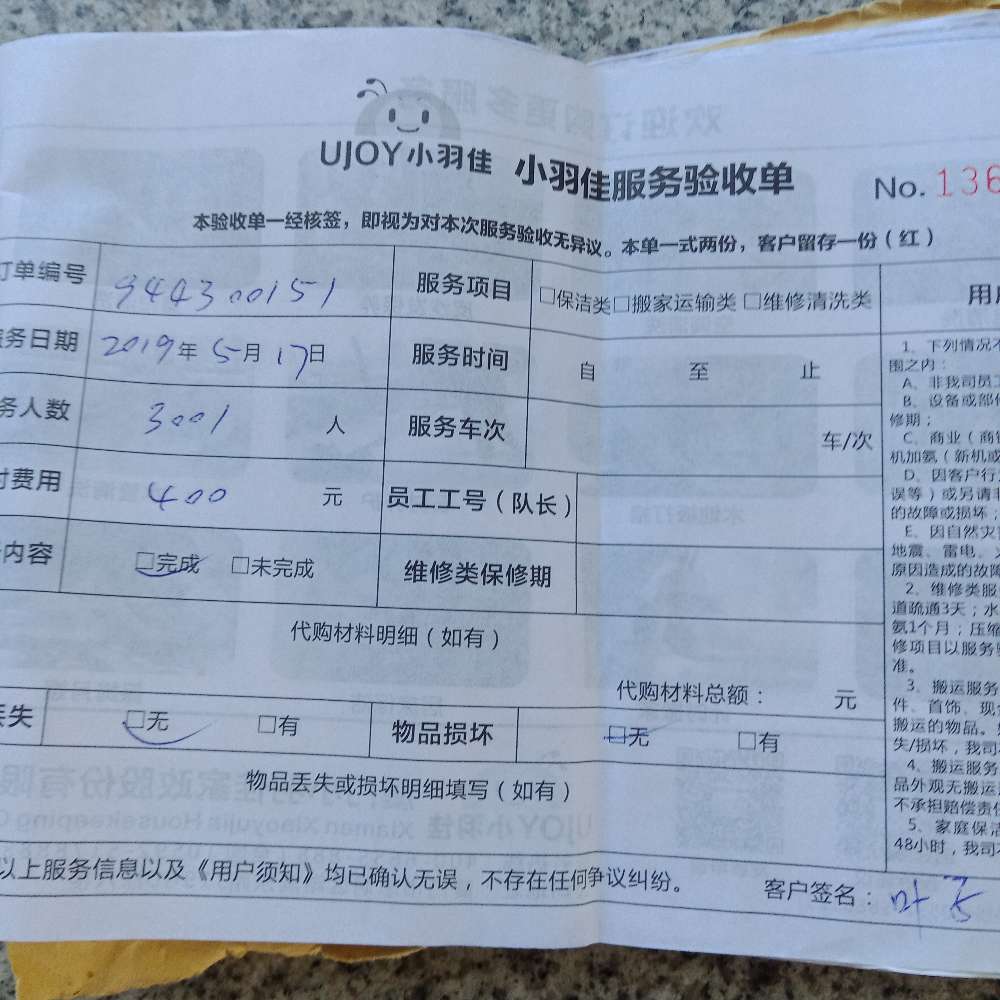 UJOY小羽佳 小羽佳服务验收单 No. 136
本验收单一经核签，即视为对本次服务验收无异议。本单一式两份，客户留存一份（红）
订单编号 944300151 服务项目 □保洁类□搬家运输类□维修清洗类
务日期 2019年5月17日 服务时间 自 至 止
务人数 3001 人 服务车次 车/次
付费用 400 元 员工工号（队长）
内容 □完成 □未完成 维修类保修期
代购材料明细（如有）
代购材料总额： 元
丢失 □无 □有 物品损坏 □无 □有
物品丢失或损坏明细填写（如有）
以上服务信息以及《用户须知》均已确认无误，不存在任何争议纠纷。
客户签名：叶
用户
1、下列情况不
围之内：
A、非我司员工
B、设备或部件
修期；
C、商业（商铺
机加氨（新机或
D、因客户行
误等）或另请非
的故障或损坏；
E、因自然灾害
地震、雷电、
原因造成的故障
2、维修类服
道疏通3天；水
氨1个月；压缩
修项目以服务验
准。
3、搬运服务
件、首饰、现金
搬运的物品。
失/损坏，我司
4、搬运服务
品外观无搬运
不承担赔偿责任
5、家庭保洁
48小时，我司不